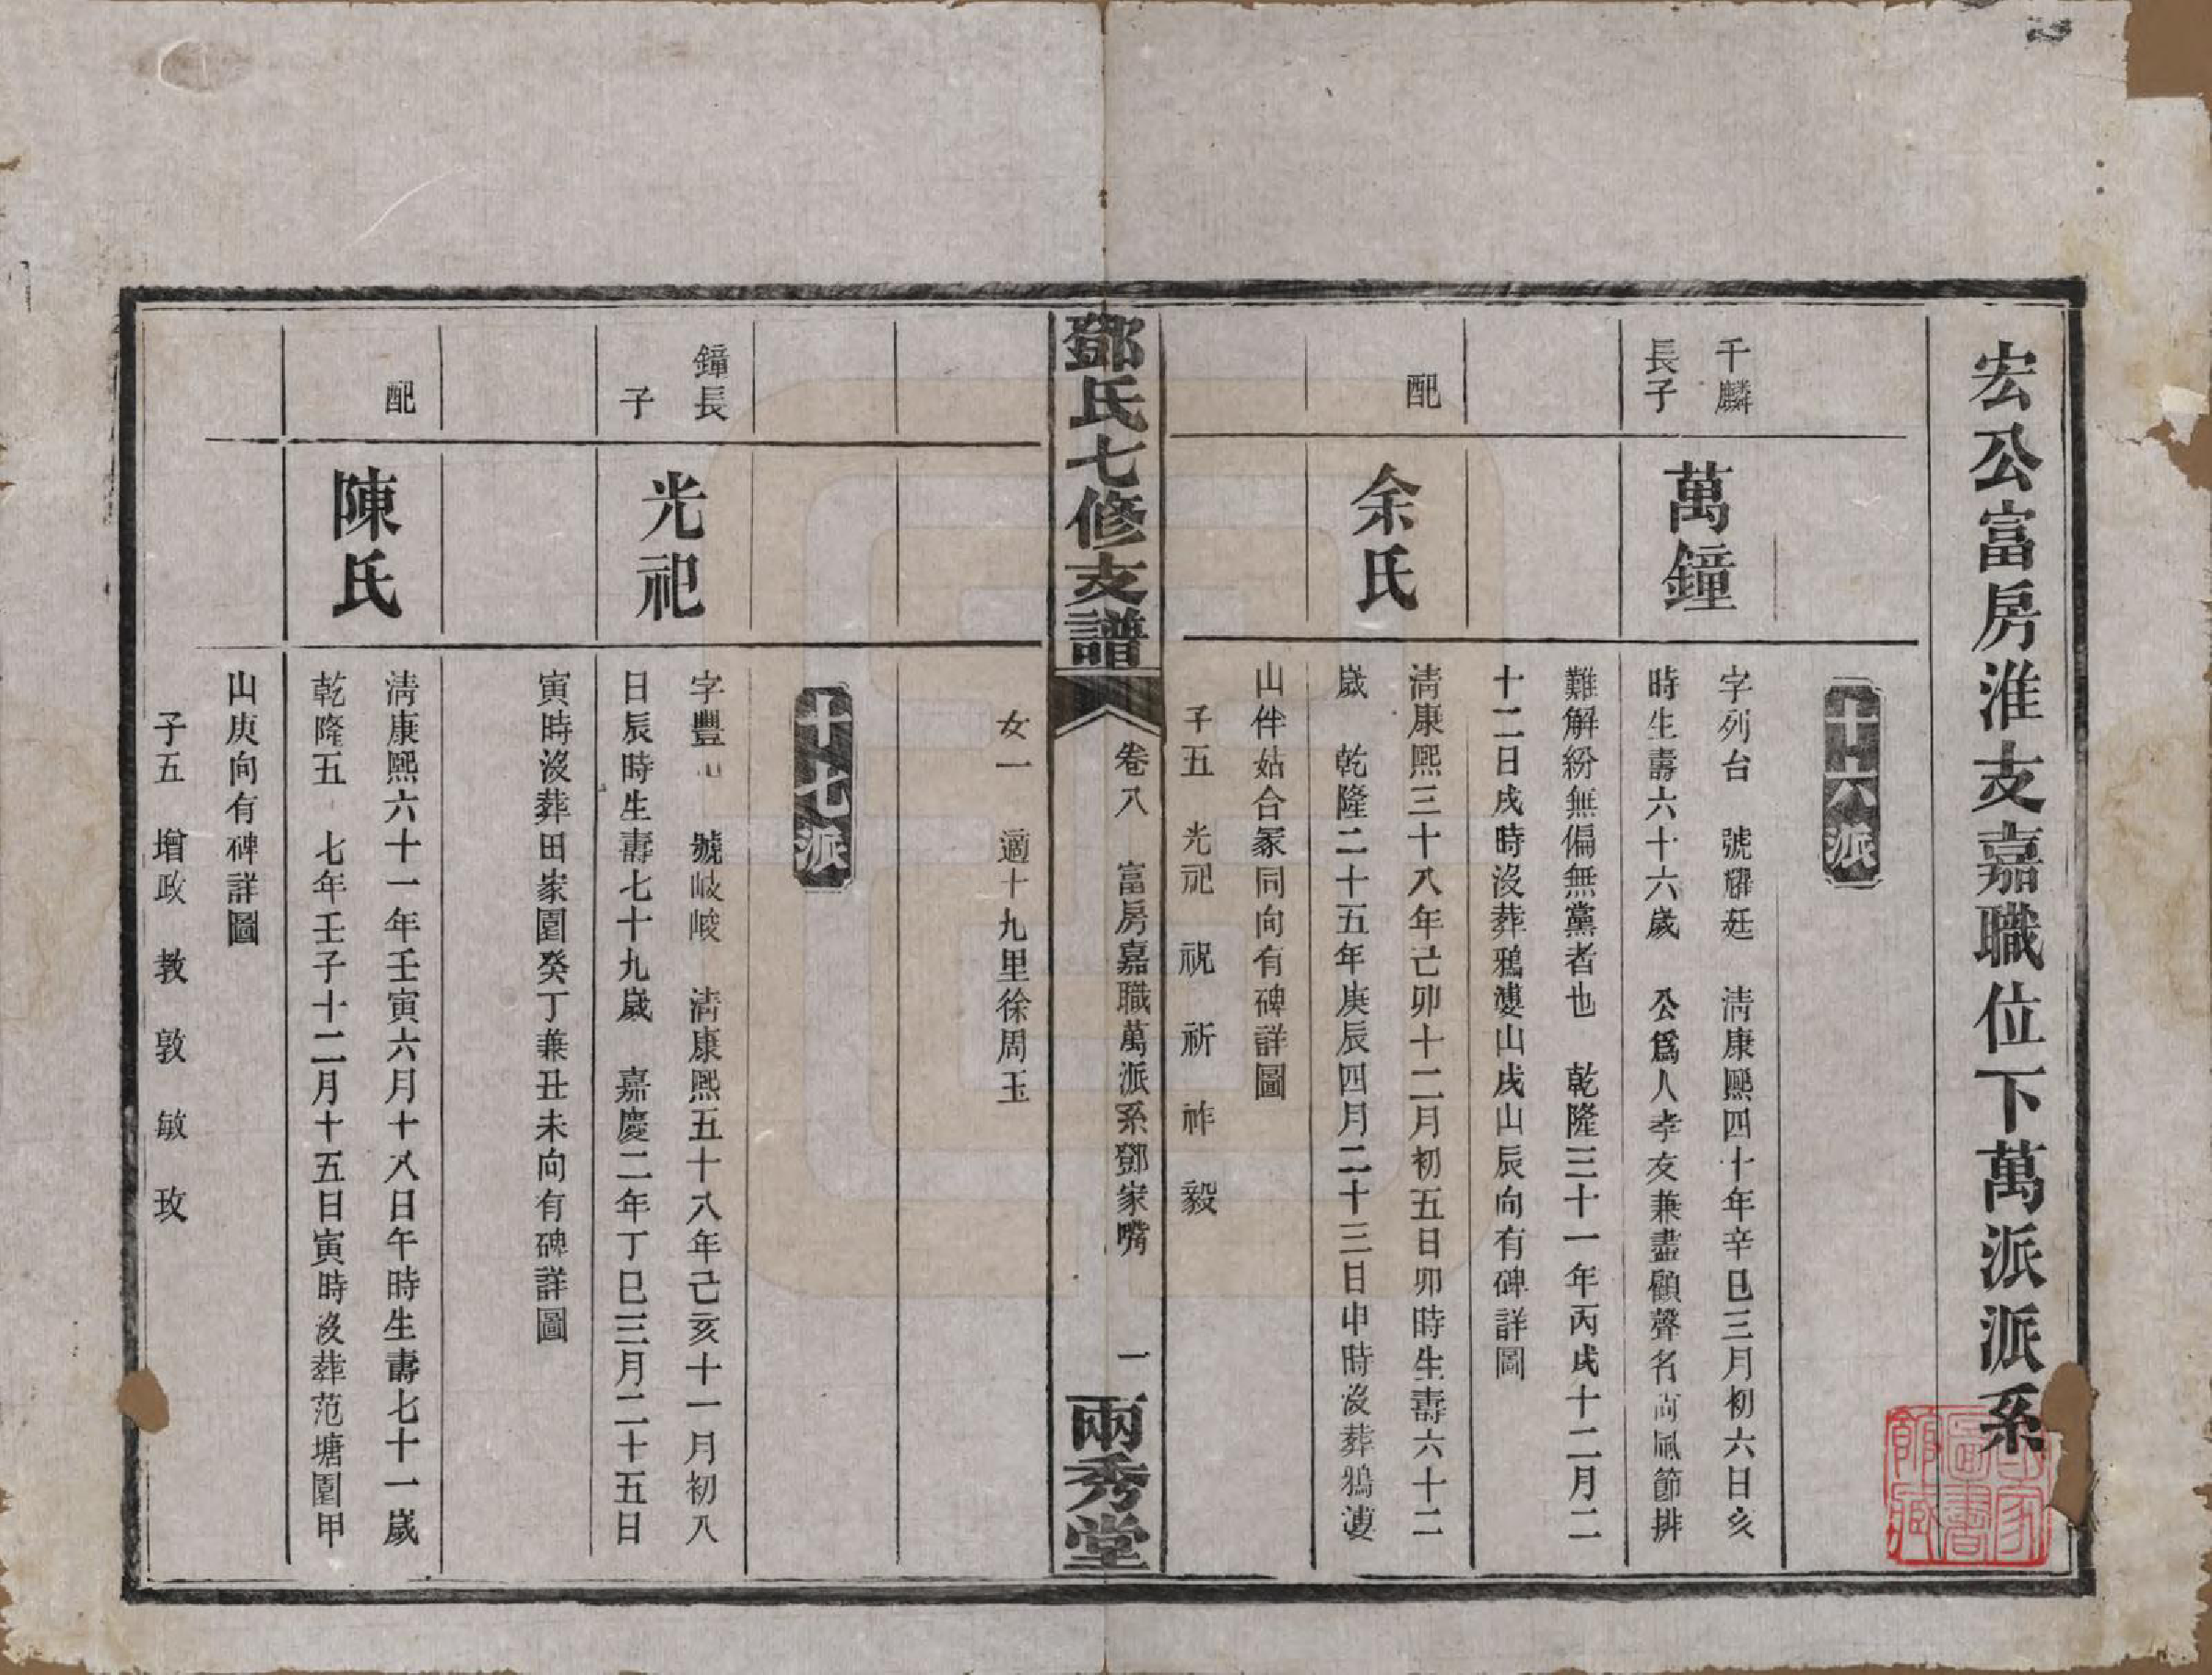 宏公富房淮支嘉職位下萬派派系
十六派
千麟
長子
萬鐘
字列台　號耀廷　清康熙四十年辛巳三月初六日亥
時生壽六十六歲　公爲人孝友兼盡顧聲名尚風節排
難解紛無偏無黨者也　乾隆三十一年丙戌十二月二
十二日戌時沒葬鴉漊山戌山辰向有碑詳圖
配
余氏
清康熙三十八年己卯十二月初五日卯時生壽六十二
歲　乾隆二十五年庚辰四月二十三日申時沒葬鴉漊
山伴姑合冢同向有碑詳圖
子五　光祀　祝　祈　祚　毅
鄧氏七修支譜
卷八　富房嘉職萬派系鄧家嘴　一
兩秀堂
女一　適十九里徐周玉
十七派
鐘長
子
光祀
字豐山　號岐峻　清康熙五十八年己亥十一月初八
日辰時生壽七十九歲　嘉慶二年丁巳三月二十五日
寅時沒葬田家園癸丁兼丑未向有碑詳圖
配
陳氏
清康熙六十一年壬寅六月十八日午時生壽七十一歲
乾隆五　七年壬子十二月十五日寅時沒葬范塘園甲
山庚向有碑詳圖
子五　增政　教　敦　敏　玫
國家圖書館藏